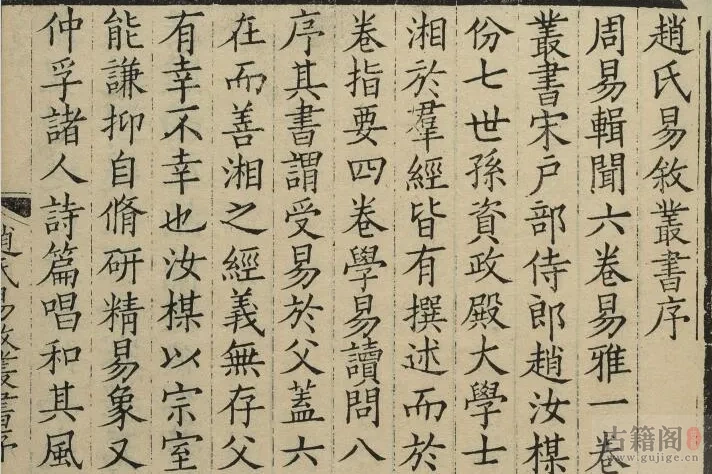 趙氏易敘叢書序
周易輯聞六卷易雅一卷
叢書宋戶部侍郎趙汝楳
份七世孫資政殿大學士
湘於羣經皆有撰述而於
卷指要四卷學易讀問八
序其書謂受易於父蓋六
在而善湘之經義無存父
有幸不幸也汝楳以宗室
能謙抑自脩研精易象又
仲孚諸人詩篇唱和其風
趙氏易敘叢書序
古籍阁
www.gujige.cn